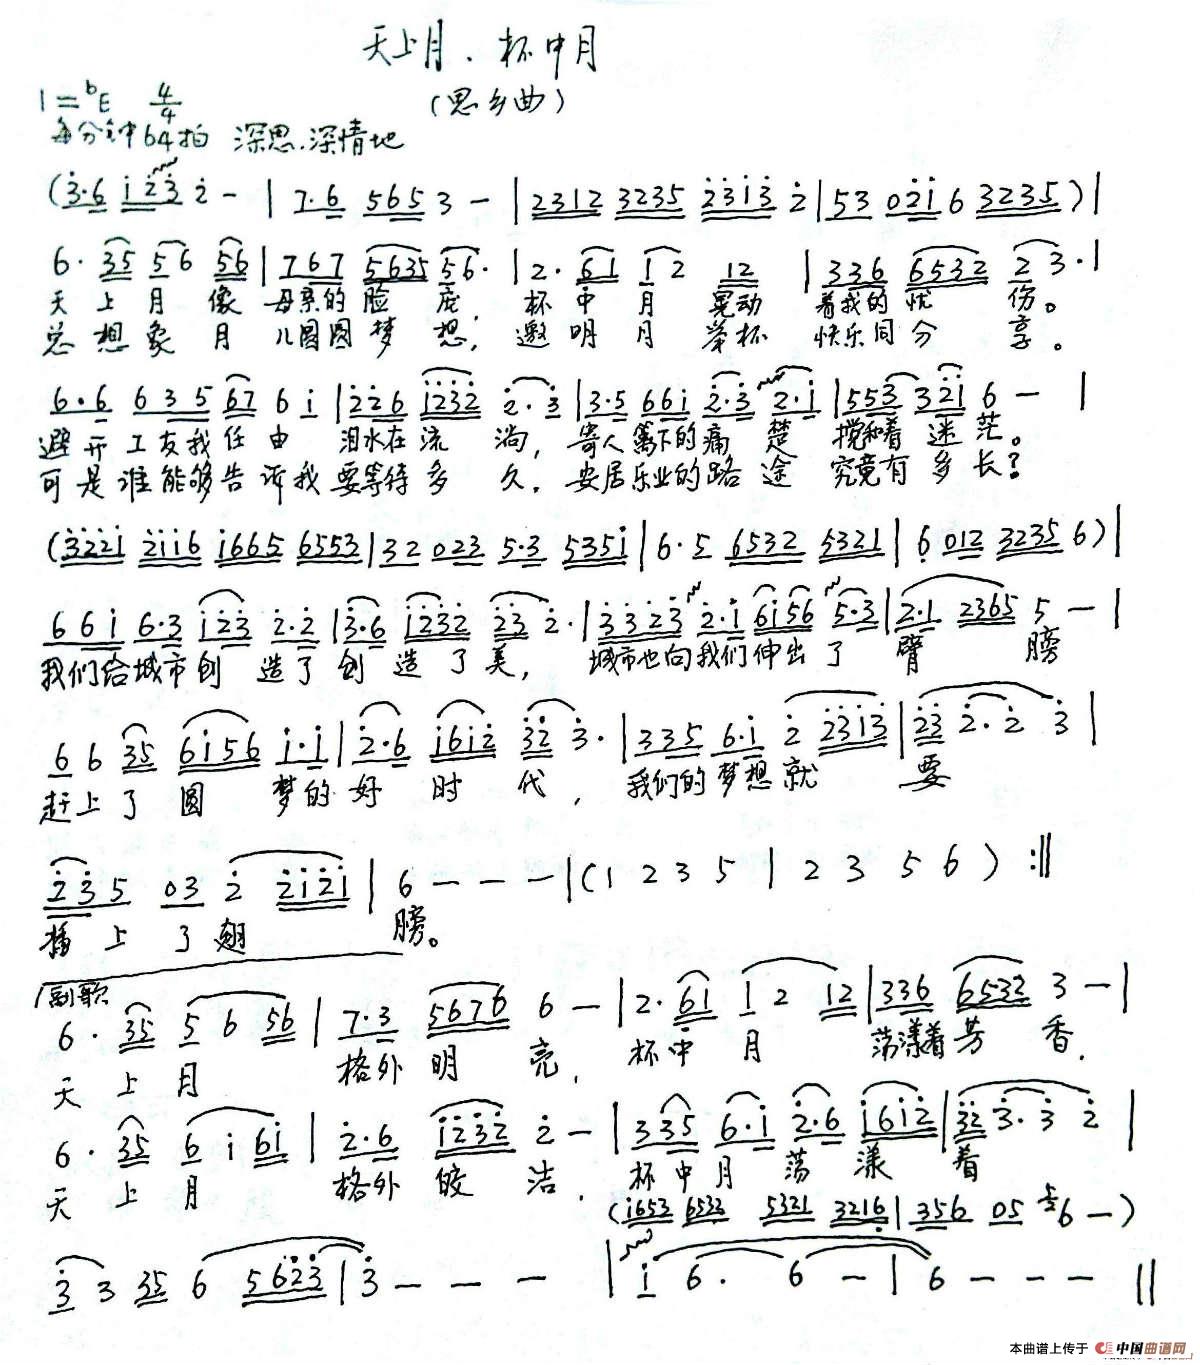 天上月·杯中月
(思乡曲)
1=♭E 4/4
每分钟64拍 深思、深情地
(3·6 1 2 3 2 - | 7·6 5 6 5 3 - | 2312 3235 2313 2 | 53 021 6 3235)|
6· 35 56 56 | 767 5635 56· | 2· 61 12 12 | 336 6532 2 3·|
天上月像母亲的脸庞,杯中月晃动着我的忧伤。
总想象月儿圆圆梦想,邀明月举杯快乐同分享。
6·6 635 67 6i | 226 1232 2·3 | 3·5 661 2·3 2·1 | 553 321 6 - |
避开工友我任由泪水在流淌,寄人篱下的痛楚搅和着迷茫。
可是谁能够告诉我要等待多久,安居乐业的路途究竟有多长?
(3221 2116 1665 6553 | 32 023 5·3 5351 | 6·5 6532 5321 | 6 012 3235 6)|
661 6·3 123 2·2 | 3·6 1232 23 2· | 3323 2·1 6156 5·3 | 2·1 2365 5 - |
我们给城市创造了创造了美,城市也向我们伸出了臂膀
6 6 35 6156 1·1 | 2·6 1612 32 3· | 335 6·1 2 2313 | 23 2·2 3 |
赶上了圆梦的好时代,我们的梦想就要
235 03 2 2121 | 6 - - - | (1 2 3 5 | 2 3 5 6) :||
插上了翅膀。
副歌
6· 35 5 6 56 | 7·3 5676 6 - | 2· 61 1 2 12 | 336 6532 3 - |
天上月格外明亮,杯中月荡漾着芳香,
6· 35 6 1 61 | 2·6 1232 2 - | 335 6·1 2·6 1612 | 32 3·3 2 |
天上月格外皎洁,杯中月荡漾着
(1653 6533 5321 3216 | 356 05 56 -)
3 3 35 6 5623 | 3 - - - | 1 6· 6 - | 6 - - - ||
本曲谱上传于 中国曲谱网